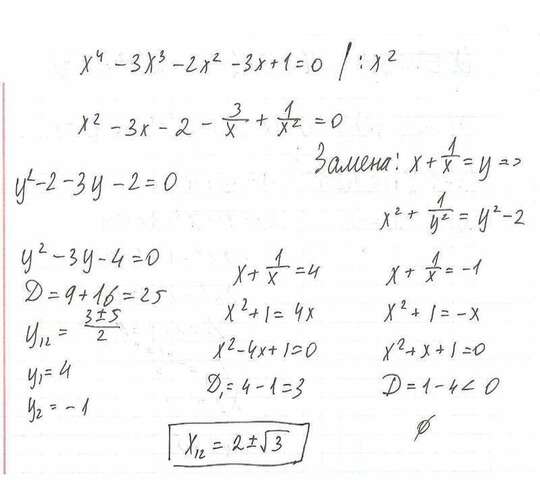 x⁴ - 3x³ - 2x² - 3x + 1 = 0 / : x²
x² - 3x - 2 - 3/x + 1/x² = 0
Замена: x + 1/x = y =>
x² + 1/y² = y² - 2
y² - 2 - 3y - 2 = 0
y² - 3y - 4 = 0
D = 9 + 16 = 25
y₁₂ = (3 ± 5)/2
y₁ = 4
y₂ = -1
x + 1/x = 4
x² + 1 = 4x
x² - 4x + 1 = 0
D₁ = 4 - 1 = 3
x + 1/x = -1
x² + 1 = -x
x² + x + 1 = 0
D = 1 - 4 < 0
∅
x₁₂ = 2 ± √3